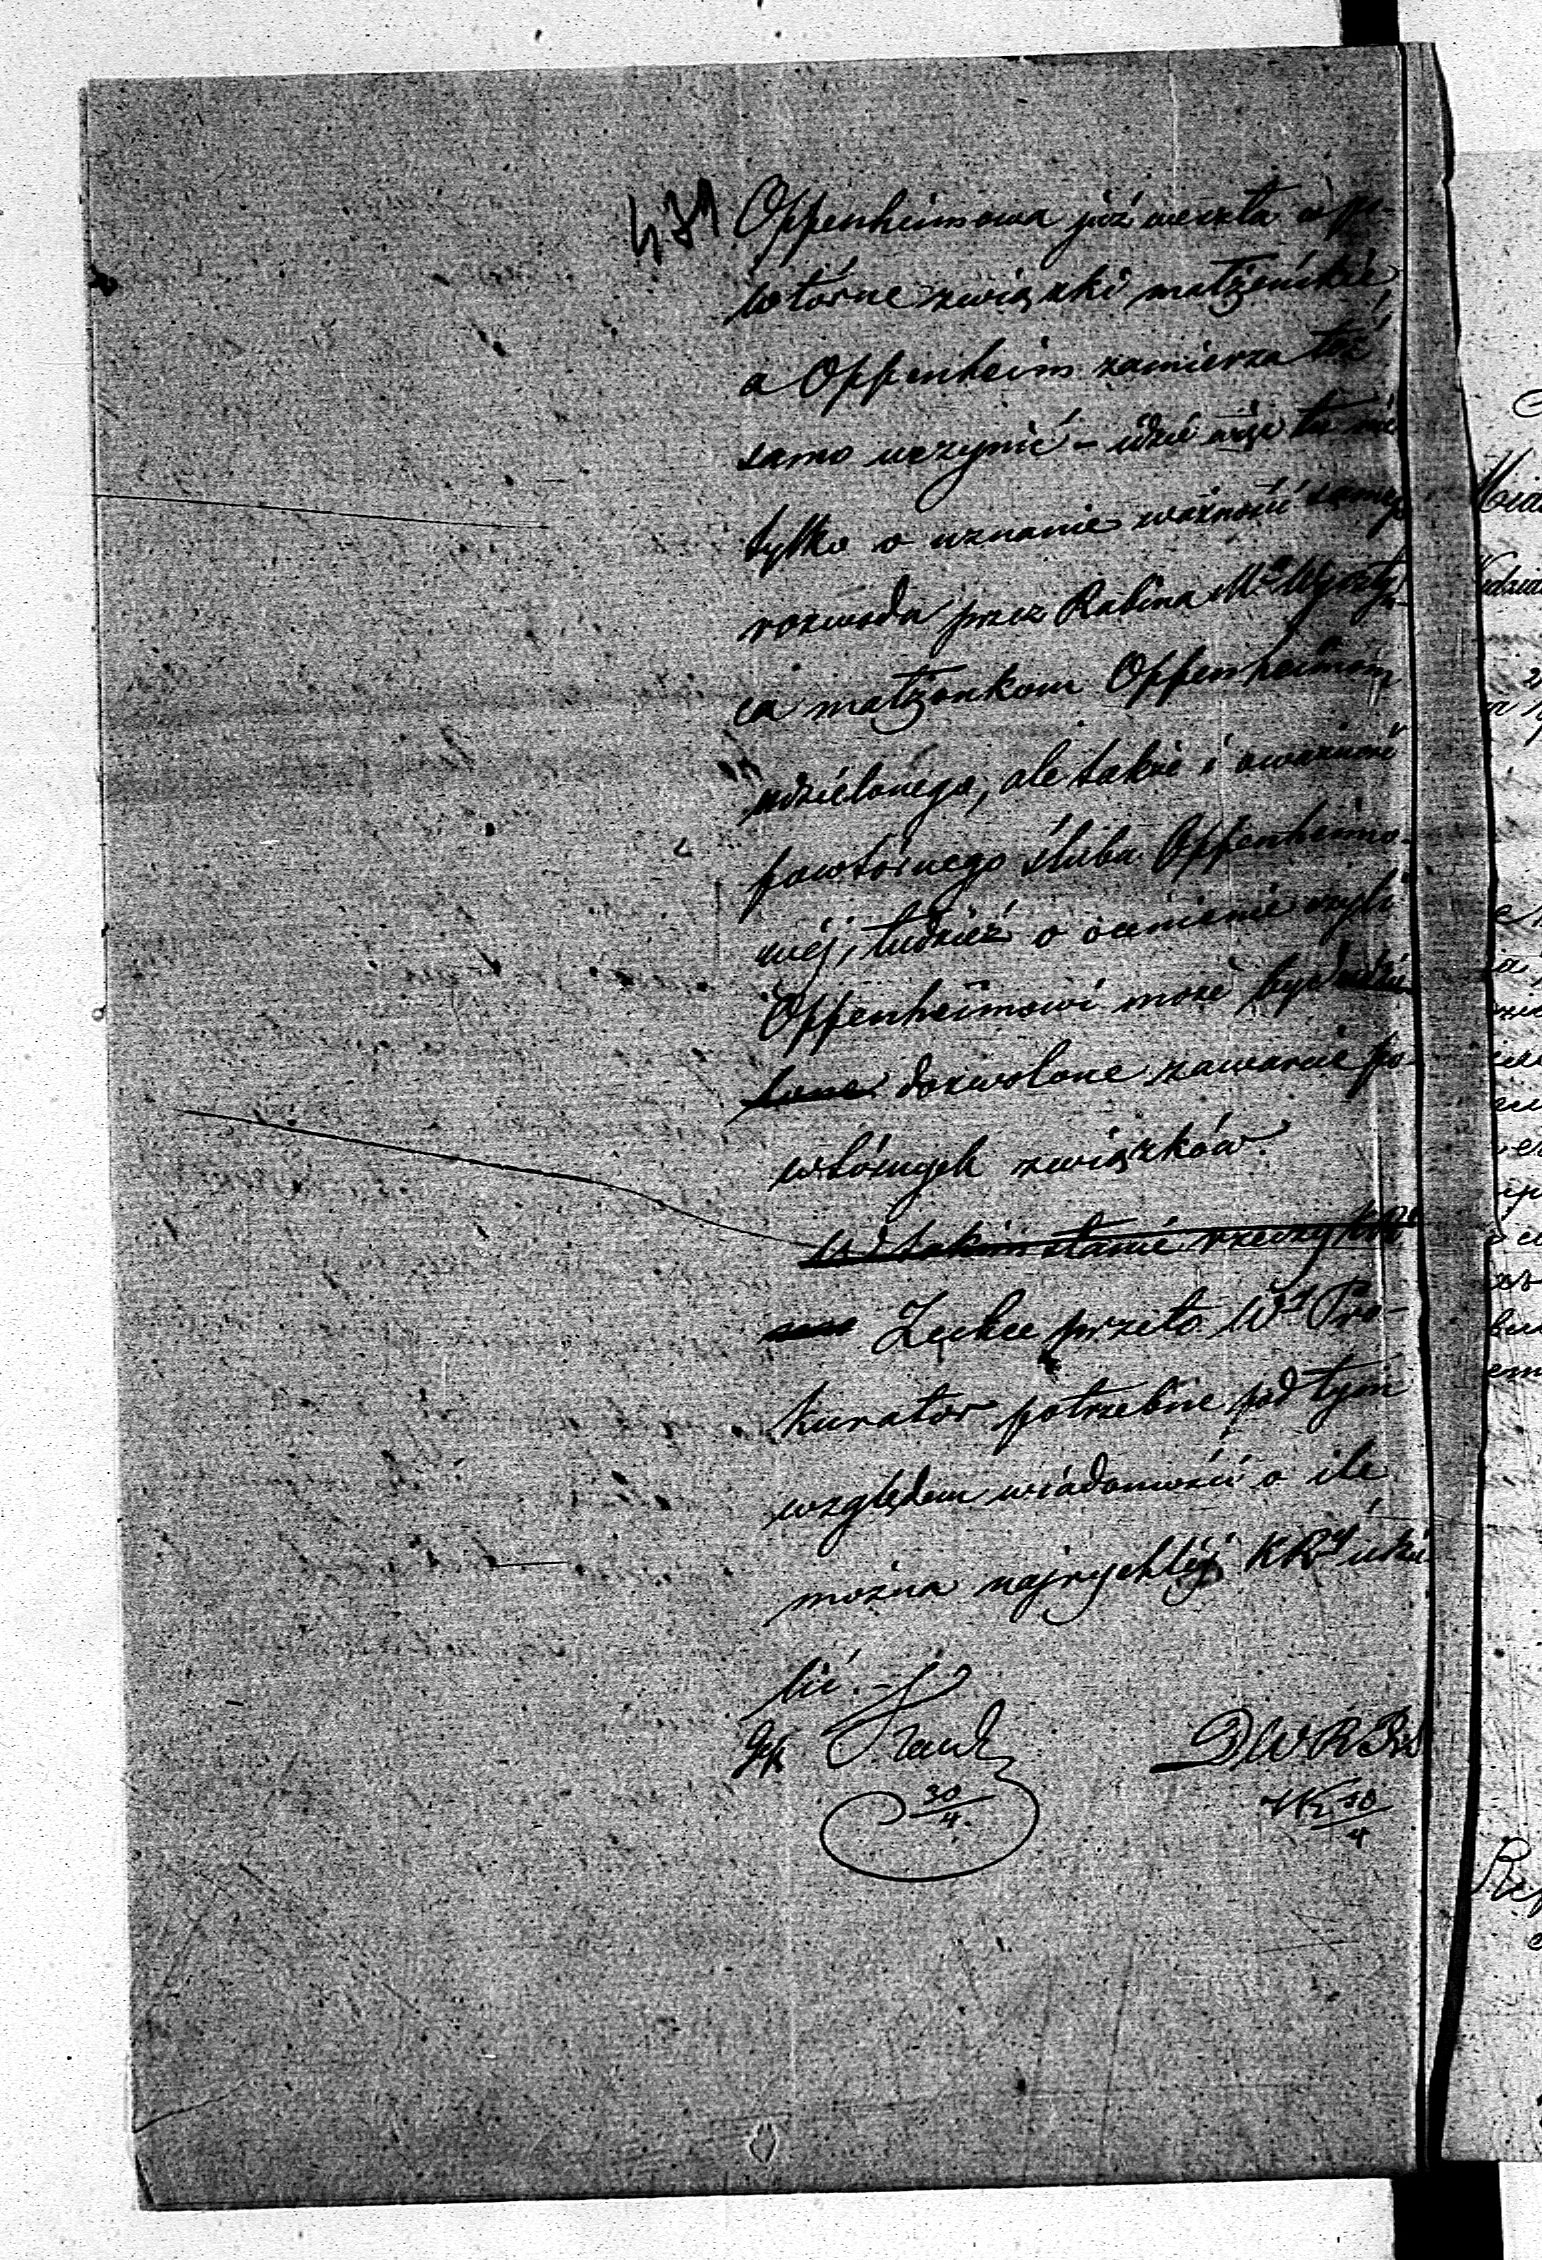 471 Oppenheimowa już weszła w po-
wtórne związki małżeńskie,
a Oppenheim zamierza toż
samo uczynić – idzie więc tu nie
tylko o uznanie ważności samego
rozwodu przez Rabina Mta Wyszogr-
ca małżonkom Oppenheimom
udzielonego, ale także i o ważność
powtórnego ślubu Oppenheimo-
wéj, tudzież o ocenienie czyli
Oppenheimowi może być udzie-
lone dozwolone zawarcie po-
wtórnych związków.
W takim stanie rzeczy KR
Zechce przeto Wy Pro-
kurator potrzebne pod tym
względem wiadomości o ile
można najrychléj KRy udzie-
lić. –
30/4
DWR Pr
30/4